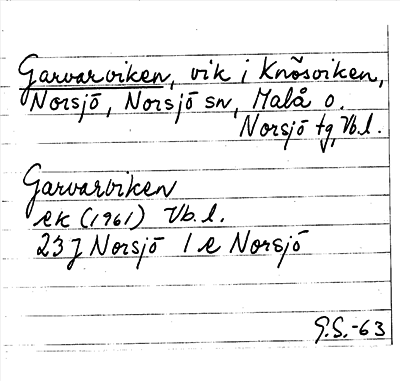 Garvarviken, vik i Knösviken,
Norsjö, Norsjö sn, Malå o.
Norsjö tg, Vb.l.
Garvarviken
ek (1961) Vb.l.
23 J Norsjö 1 e Norsjö
G.S.-63